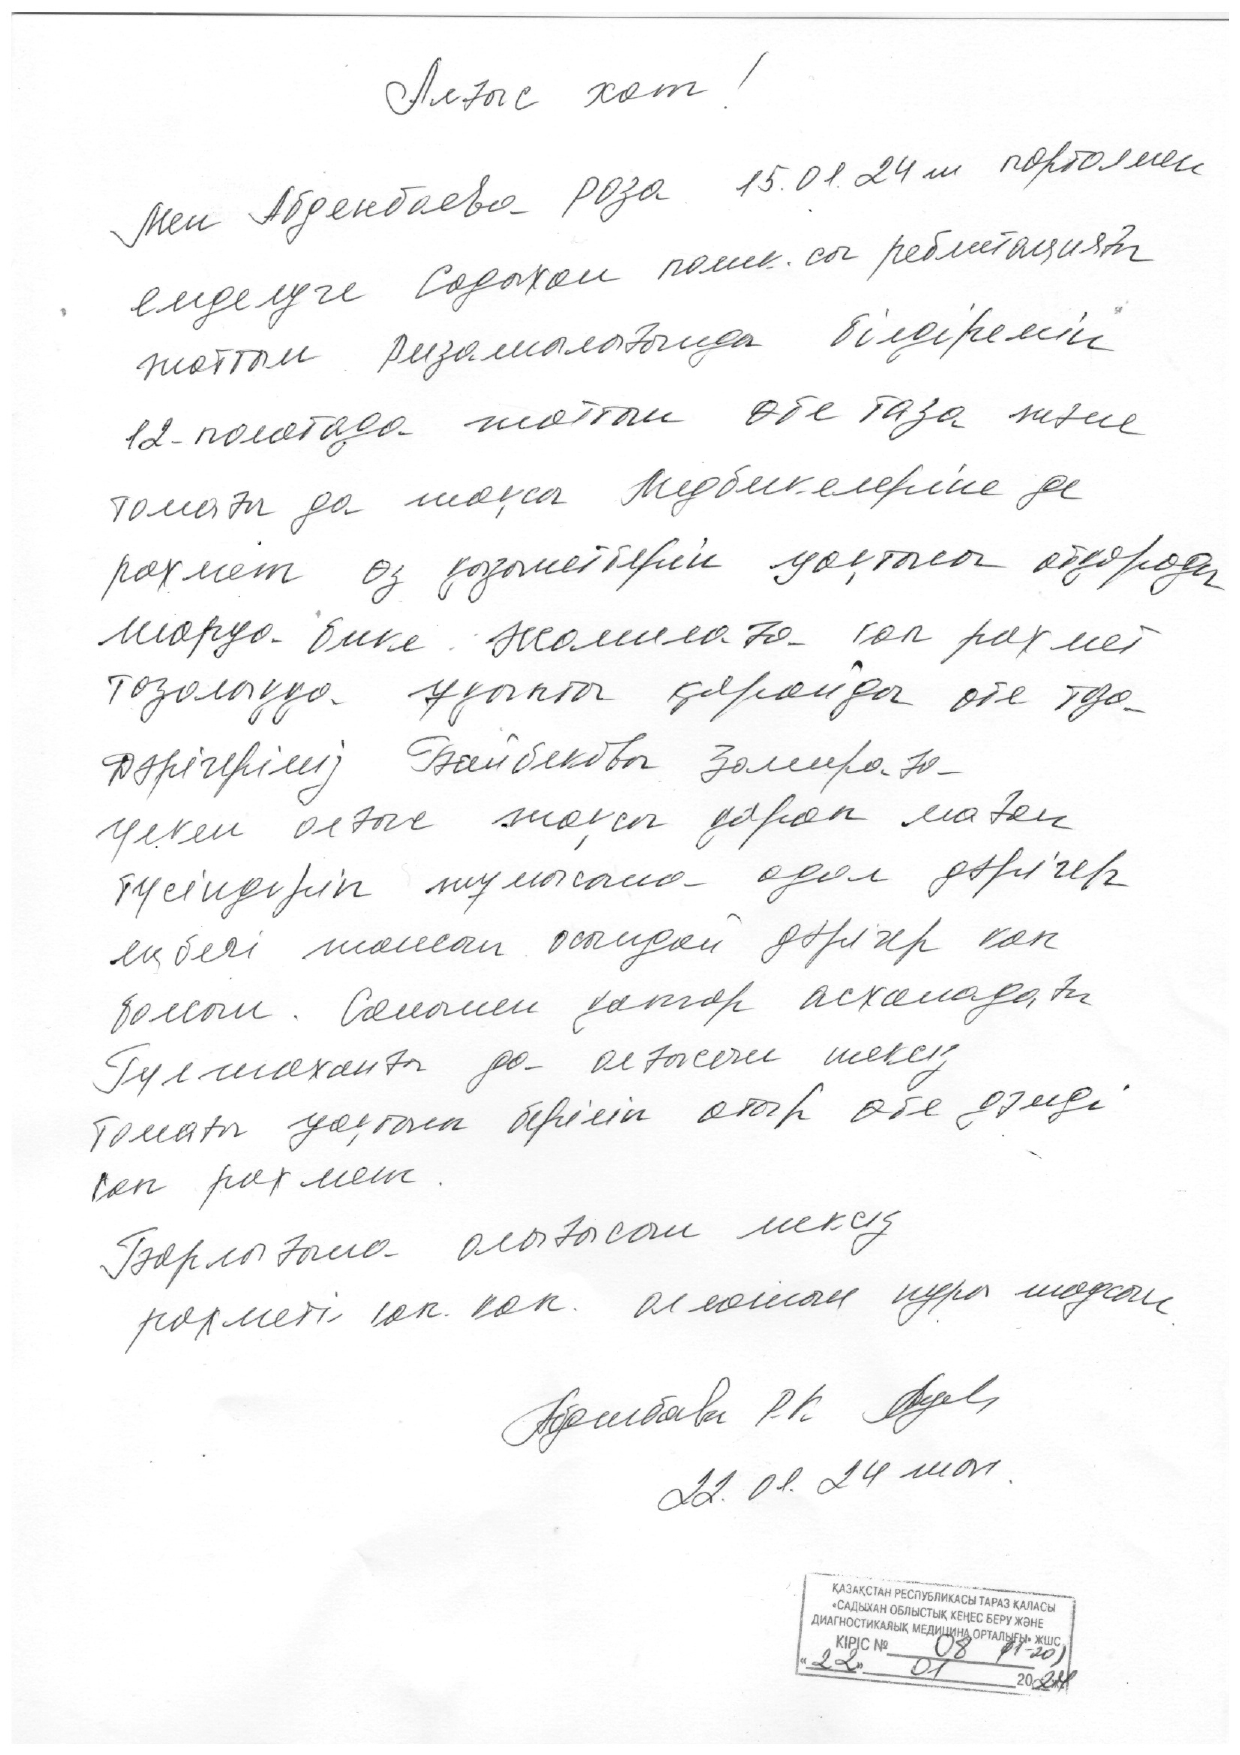 Алғыс хат!
Мен Абденбаева Роза 15.01.24ш порталмен
емделуге Садыхан полик.сы реблитацияғы
жаттым Ризашылығымды білдіремін
12-палатада жаттым өте таза және
тамағы да жақсы Медбикелеріне де
рахмет өз қызметтерін уақтылы атқарады
бике Жамилаға көп рахмет
тазалыққа ұқыпты қарайды өте таза
дәрігеріміз Байбекова Замираға
үлкен алғыс жақсы қарап маған
түсіндіріп жұмысына адал дәрігер
еңбегі жансын осындай дәрігер көп
болсын. Сонымен қатар асханадағы
Гулжаханғы да алғысым шексіз
тамағы уақтылы беріліп отыр өте дәмді
көп рахмет.
Барлығына алығысым шексіз
рахметі көп. көп. алланың нұры жаусын.
Р.К.
22.01.24 жыл.
ҚАЗАҚСТАН РЕСПУБЛИКАСЫ ТАРАЗ ҚАЛАСЫ
«САДЫХАН ОБЛЫСТЫҚ КЕҢЕС БЕРУ ЖӘНЕ
ДИАГНОСТИКАЛЫҚ МЕДИЦИНА ОРТАЛЫҒЫ» ЖШС
КІРІС № 08 (11-20)
«22» 01 2024